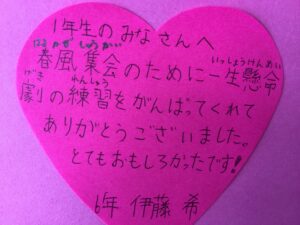 1年生のみなさんへ
はるかぜしゅうかい いっしょうけんめい
春風集会のために一生懸命
げき れんしゅう
劇の練習をがんばってくれて
ありがとうございました。
とてもおもしろかったです!
6年 伊藤 希